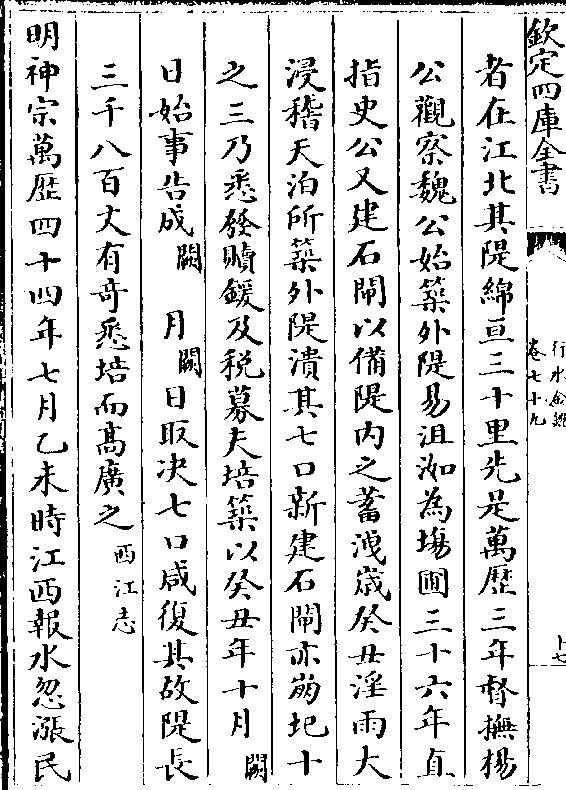 欽定四庫全書
行水金鑑
卷七十九
十七
者在江北其隄綿亘三十里先是萬歷三年督撫楊
公觀察魏公始築外隄易沮洳為塲圃三十六年直
指史公又建石閘以備隄内之蓄洩歳癸丑淫雨大
浸稽天泊所築外隄潰其七口新建石閘亦崩圮十
之三乃悉發贖鍰及税募夫培築以癸丑年十月闕
日始事告成闕月闕日取决七口咸復其故隄長
三千八百丈有奇悉培而髙廣之西江志
明神宗萬歴四十四年七月乙未時江西報水忽漲民